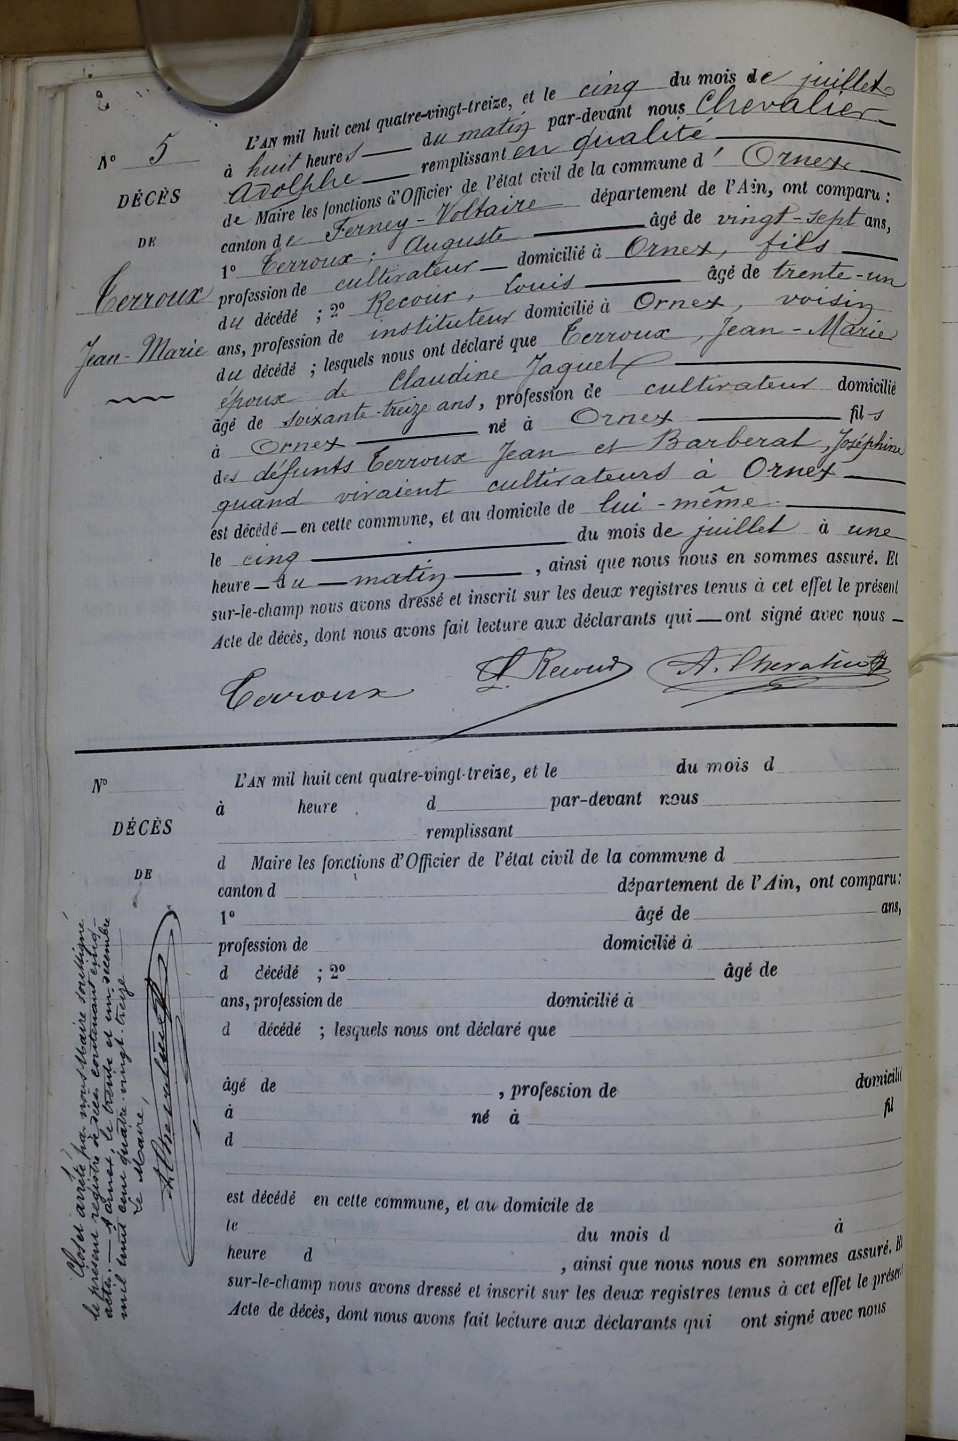 N° 5
DÉCÈS
DE
Terroux
Jean-Marie
L'AN mil huit cent quatre-vingt-treize, et le cinq du mois de juillet
à huit heures du matin par-devant nous Chevalier
Adolphe remplissant en qualité
de Maire les fonctions d'Officier de l'état civil de la commune d'Ornex
canton de Ferney-Voltaire département de l'Ain, ont comparu :
1° Terroux, Auguste âgé de vingt-sept ans,
profession de cultivateur domicilié à Ornex, fils
du décédé ; 2° Recour, Louis âgé de trente-un
ans, profession de instituteur domicilié à Ornex, voisin
du décédé ; lesquels nous ont déclaré que Terroux, Jean-Marie
époux de Claudine Jaquet
âgé de soixante-treize ans, profession de cultivateur domicilié
à Ornex né à Ornex fils
des défunts Terroux Jean et Barberat, Joséphine
quand vivaient cultivateurs à Ornex
est décédé en cette commune, et au domicile de lui-même
le cinq du mois de juillet à une
heure du matin, ainsi que nous nous en sommes assuré. Et
sur-le-champ nous avons dressé et inscrit sur les deux registres tenus à cet effet le présent
Acte de décès, dont nous avons fait lecture aux déclarants qui ont signé avec nous
Terroux L. Recour A. Chevalier
N°
DÉCÈS
DE
L'AN mil huit cent quatre-vingt-treize, et le du mois d
à heure d par-devant nous
remplissant
d Maire les fonctions d'Officier de l'état civil de la commune d
canton d département de l'Ain, ont comparu :
1° âgé de ans,
profession de domicilié à
d décédé ; 2° âgé de
ans, profession de domicilié à
d décédé ; lesquels nous ont déclaré que
âgé de , profession de domicilié
à né à fil
d
est décédé en cette commune, et au domicile de
le du mois d à
heure d , ainsi que nous nous en sommes assuré. Et
sur-le-champ nous avons dressé et inscrit sur les deux registres tenus à cet effet le présent
Acte de décès, dont nous avons fait lecture aux déclarants qui ont signé avec nous
Clos et arrêté par nous Maire soussigné
le présent registre de décès contenant cinq
actes. — A Ornex, le trente et un décembre
mil huit cent quatre-vingt-treize
Le Maire,
A. Chevalier